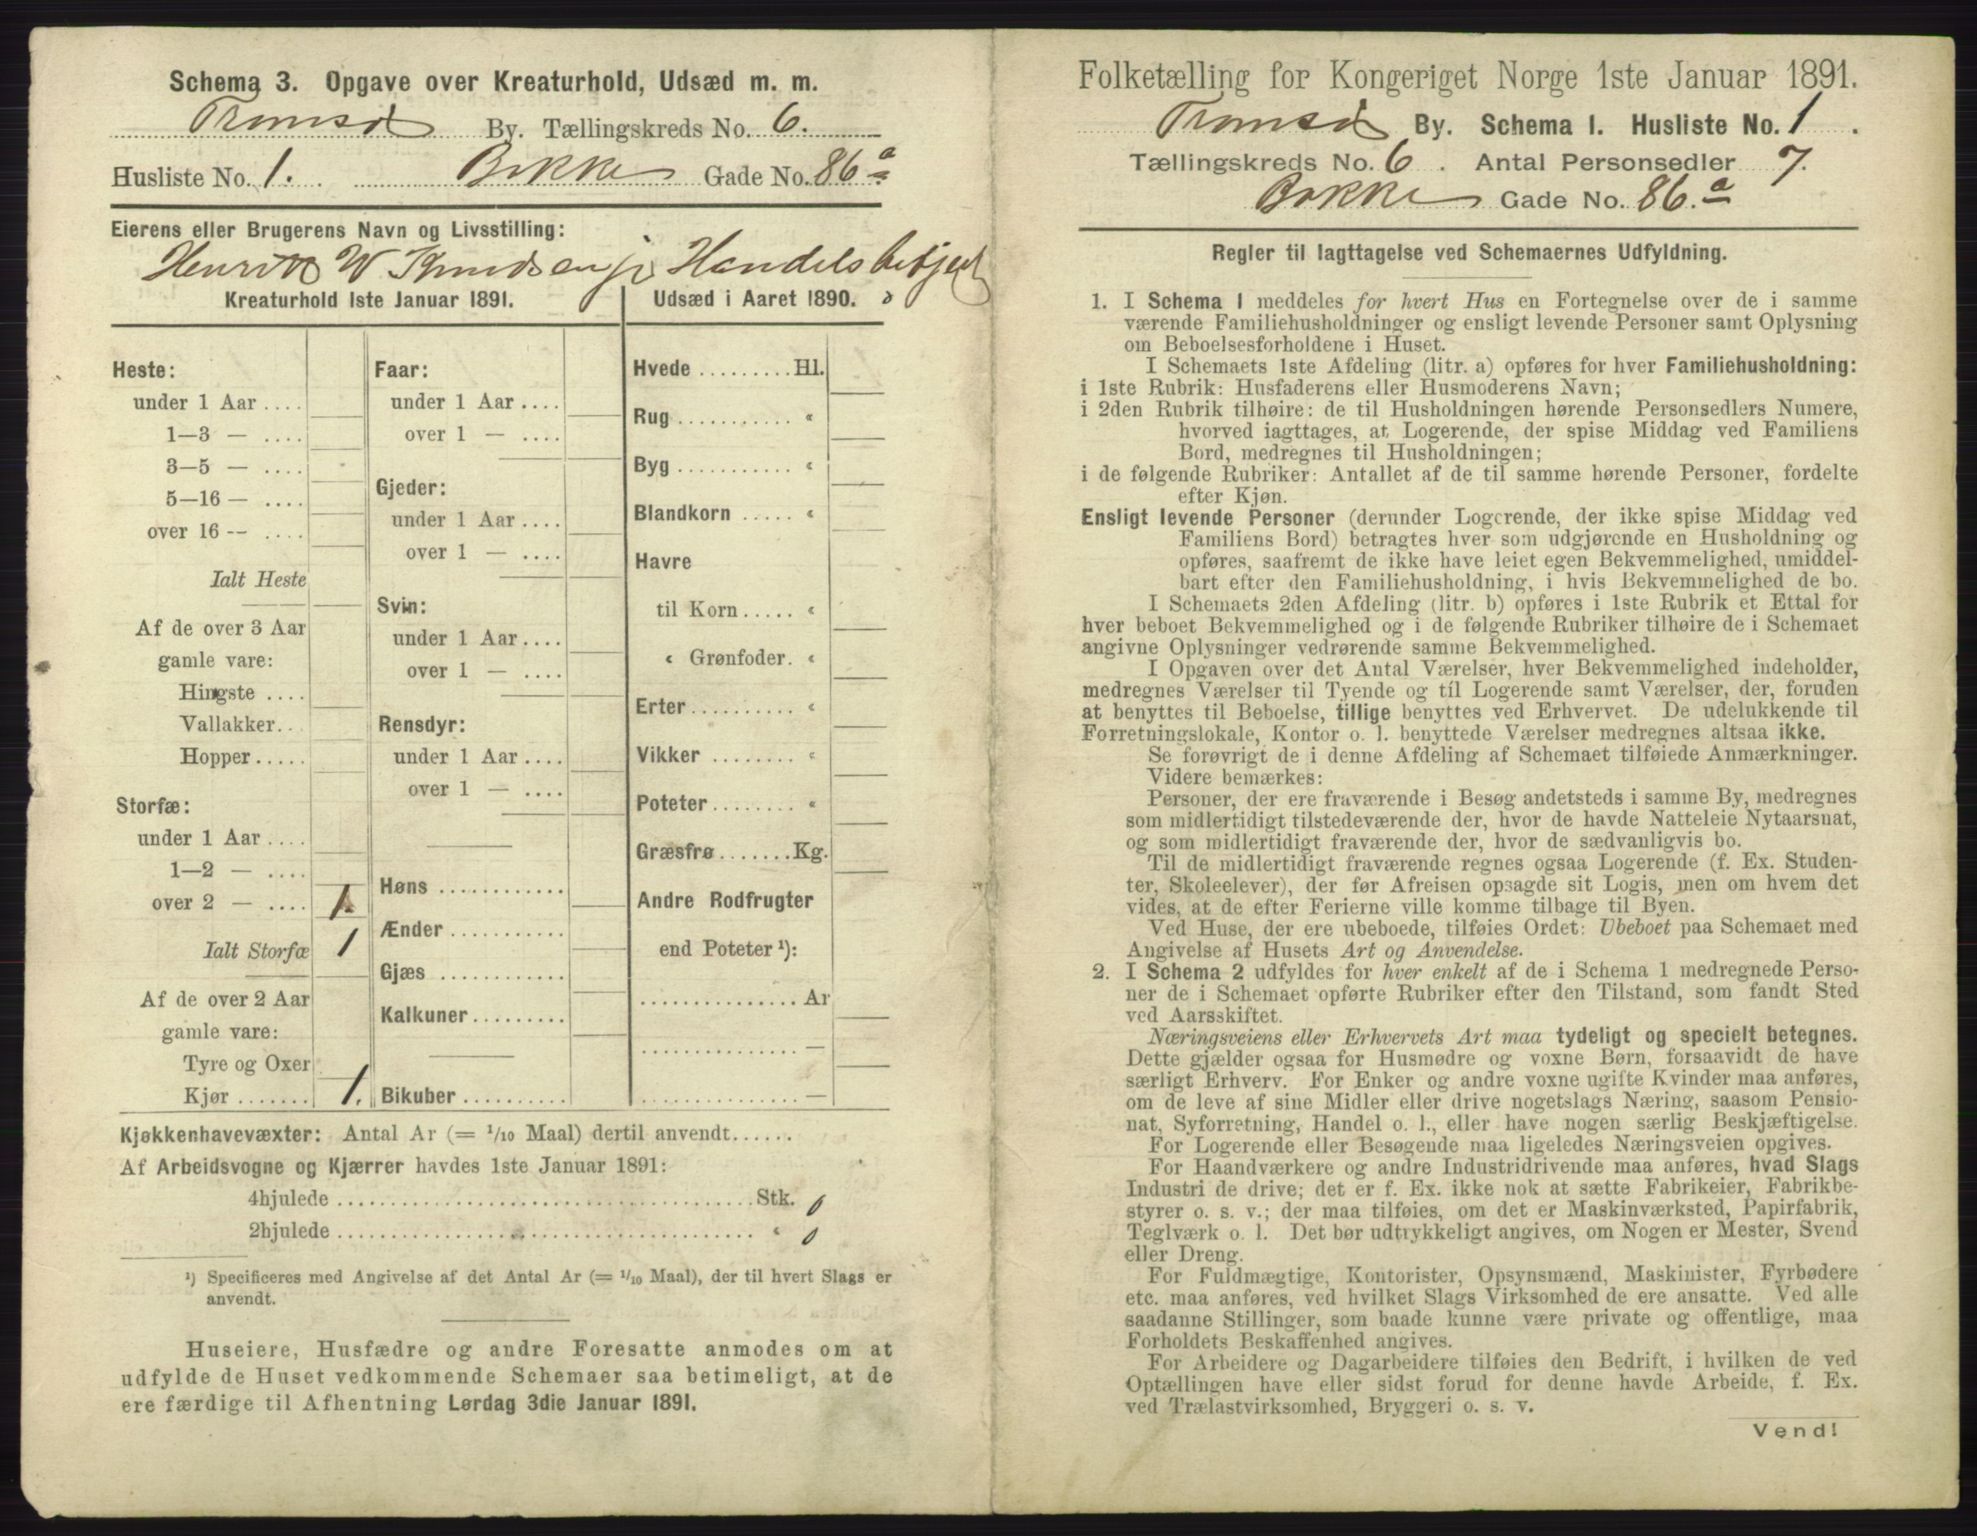 Schema 3. Opgave over Kreaturhold, Udsæd m. m.
Tromsø By. Tællingskreds No. 6.
Husliste No. 1. Bakke Gade No. 86a
Eierens eller Brugerens Navn og Livsstilling:
W Knudsen jr Handelsbetjent
Kreaturhold 1ste Januar 1891.
Heste:
under 1 Aar ....
1—3 — ....
3—5 — ....
5—16 — ....
over 16 -- ....
Ialt Heste
Af de over 3 Aar
gamle vare:
Hingste ....
Vallakker..
Hopper.....
Storfæ:
under 1 Aar ....
1—2 — ....
over 2 — .... 1.
Ialt Storfæ 1
Af de over 2 Aar
gamle vare:
Tyre og Oxer
Kjør ....... 1.
Faar:
under 1 Aar ....
over 1 — ....
Gjeder:
under 1 Aar ....
over 1 — ....
Svin:
under 1 Aar ....
over 1 — ....
Rensdyr:
under 1 Aar ....
over 1 — ....
Høns ............
Ænder ...........
Gjæs ............
Kalkuner.........
Bikuber ..........
Udsæd i Aaret 1890.
Hvede .........Hl.
Rug ........... «
Byg ........... «
Blandkorn ..... «
Havre
til Korn ..... «
« Grønfoder. «
Erter .......... «
Vikker ........ «
Poteter ........ «
Græsfrø .......Kg.
Andre Rodfrugter
end Poteter ¹):
............... Ar
............... —
............... —
Kjøkkenhavevæxter: Antal Ar (= 1/10 Maal) dertil anvendt......
Af Arbeidsvogne og Kjærrer havdes 1ste Januar 1891:
4hjulede ........................................Stk. 0
2hjulede ........................................ « 0
¹) Specificeres med Angivelse af det Antal Ar (= 1/10 Maal), der til hvert Slags er
anvendt.
Huseiere, Husfædre og andre Foresatte anmodes om at
udfylde de Huset vedkommende Schemaer saa betimeligt, at de
ere færdige til Afhentning Lørdag 3die Januar 1891.
Folketælling for Kongeriget Norge 1ste Januar 1891.
Tromsø By. Schema 1. Husliste No. 1.
Tællingskreds No. 6. Antal Personsedler 7.
Bakke Gade No. 86.a
Regler til Iagttagelse ved Schemaernes Udfyldning.
1. I Schema 1 meddeles for hvert Hus en Fortegnelse over de i samme
værende Familiehusholdninger og ensligt levende Personer samt Oplysning
om Beboelsesforholdene i Huset.
I Schemaets 1ste Afdeling (litr. a) opføres for hver Familiehusholdning:
i 1ste Rubrik: Husfaderens eller Husmoderens Navn;
i 2den Rubrik tilhøire: de til Husholdningen hørende Personsedlers Numere,
hvorved iagttages, at Logerende, der spise Middag ved Familiens
Bord, medregnes til Husholdningen;
i de følgende Rubriker: Antallet af de til samme hørende Personer, fordelte
efter Kjøn.
Ensligt levende Personer (derunder Logerende, der ikke spise Middag ved
Familiens Bord) betragtes hver som udgjørende en Husholdning og
opføres, saafremt de ikke have leiet egen Bekvemmelighed, umiddel-
bart efter den Familiehusholdning, i hvis Bekvemmelighed de bo.
I Schemaets 2den Afdeling (litr. b) opføres i 1ste Rubrik et Ettal for
hver beboet Bekvemmelighed og i de følgende Rubriker tilhøire de i Schemaet
angivne Oplysninger vedrørende samme Bekvemmelighed.
I Opgaven over det Antal Værelser, hver Bekvemmelighed indeholder,
medregnes Værelser til Tyende og til Logerende samt Værelser, der, foruden
at benyttes til Beboelse, tillige benyttes ved Erhvervet. De udelukkende til
Forretningslokale, Kontor o. l. benyttede Værelser medregnes altsaa ikke.
Se forøvrigt de i denne Afdeling af Schemaet tilføiede Anmærkninger.
Videre bemærkes:
Personer, der ere fraværende i Besøg andetsteds i samme By, medregnes
som midlertidigt tilstedeværende der, hvor de havde Natteleie Nytaarsnat,
og som midlertidigt fraværende der, hvor de sædvanligvis bo.
Til de midlertidigt fraværende regnes ogsaa Logerende (f. Ex. Studen-
ter, Skoleelever), der før Afreisen opsagde sit Logis, men om hvem det
vides, at de efter Ferierne ville komme tilbage til Byen.
Ved Huse, der ere ubeboede, tilføies Ordet: Ubeboet paa Schemaet med
Angivelse af Husets Art og Anvendelse.
2. I Schema 2 udfyldes for hver enkelt af de i Schema 1 medregnede Perso-
ner de i Schemaet opførte Rubriker efter den Tilstand, som fandt Sted
ved Aarsskiftet.
Næringsveiens eller Erhvervets Art maa tydeligt og specielt betegnes.
Dette gjælder ogsaa for Husmødre og voxne Børn, forsaavidt de have
særligt Erhverv. For Enker og andre voxne ugifte Kvinder maa anføres,
om de leve af sine Midler eller drive nogetslags Næring, saasom Pensio-
nat, Syforretning, Handel o. l., eller have nogen særlig Beskjæftigelse.
For Logerende eller Besøgende maa ligeledes Næringsveien opgives.
For Haandværkere og andre Industridrivende maa anføres, hvad Slags
Industri de drive; det er f. Ex. ikke nok at sætte Fabrikeier, Fabrikbe-
styrer o. s. v.; der maa tilføies, om det er Maskinværksted, Papirfabrik,
Teglværk o. l. Det bør udtrykkeligt angives, om Nogen er Mester, Svend
eller Dreng.
For Fuldmægtige, Kontorister, Opsynsmænd, Maskinister, Fyrbødere
etc. maa anføres, ved hvilket Slags Virksomhed de ere ansatte. Ved alle
saadanne Stillinger, som baade kunne være private og offentlige, maa
Forholdets Beskaffenhed angives.
For Arbeidere og Dagarbeidere tilføies den Bedrift, i hvilken de ved
Optællingen have eller sidst forud for denne havde Arbeide, f. Ex.
ved Trælastvirksomhed, Bryggeri o. s. v.
Vend!